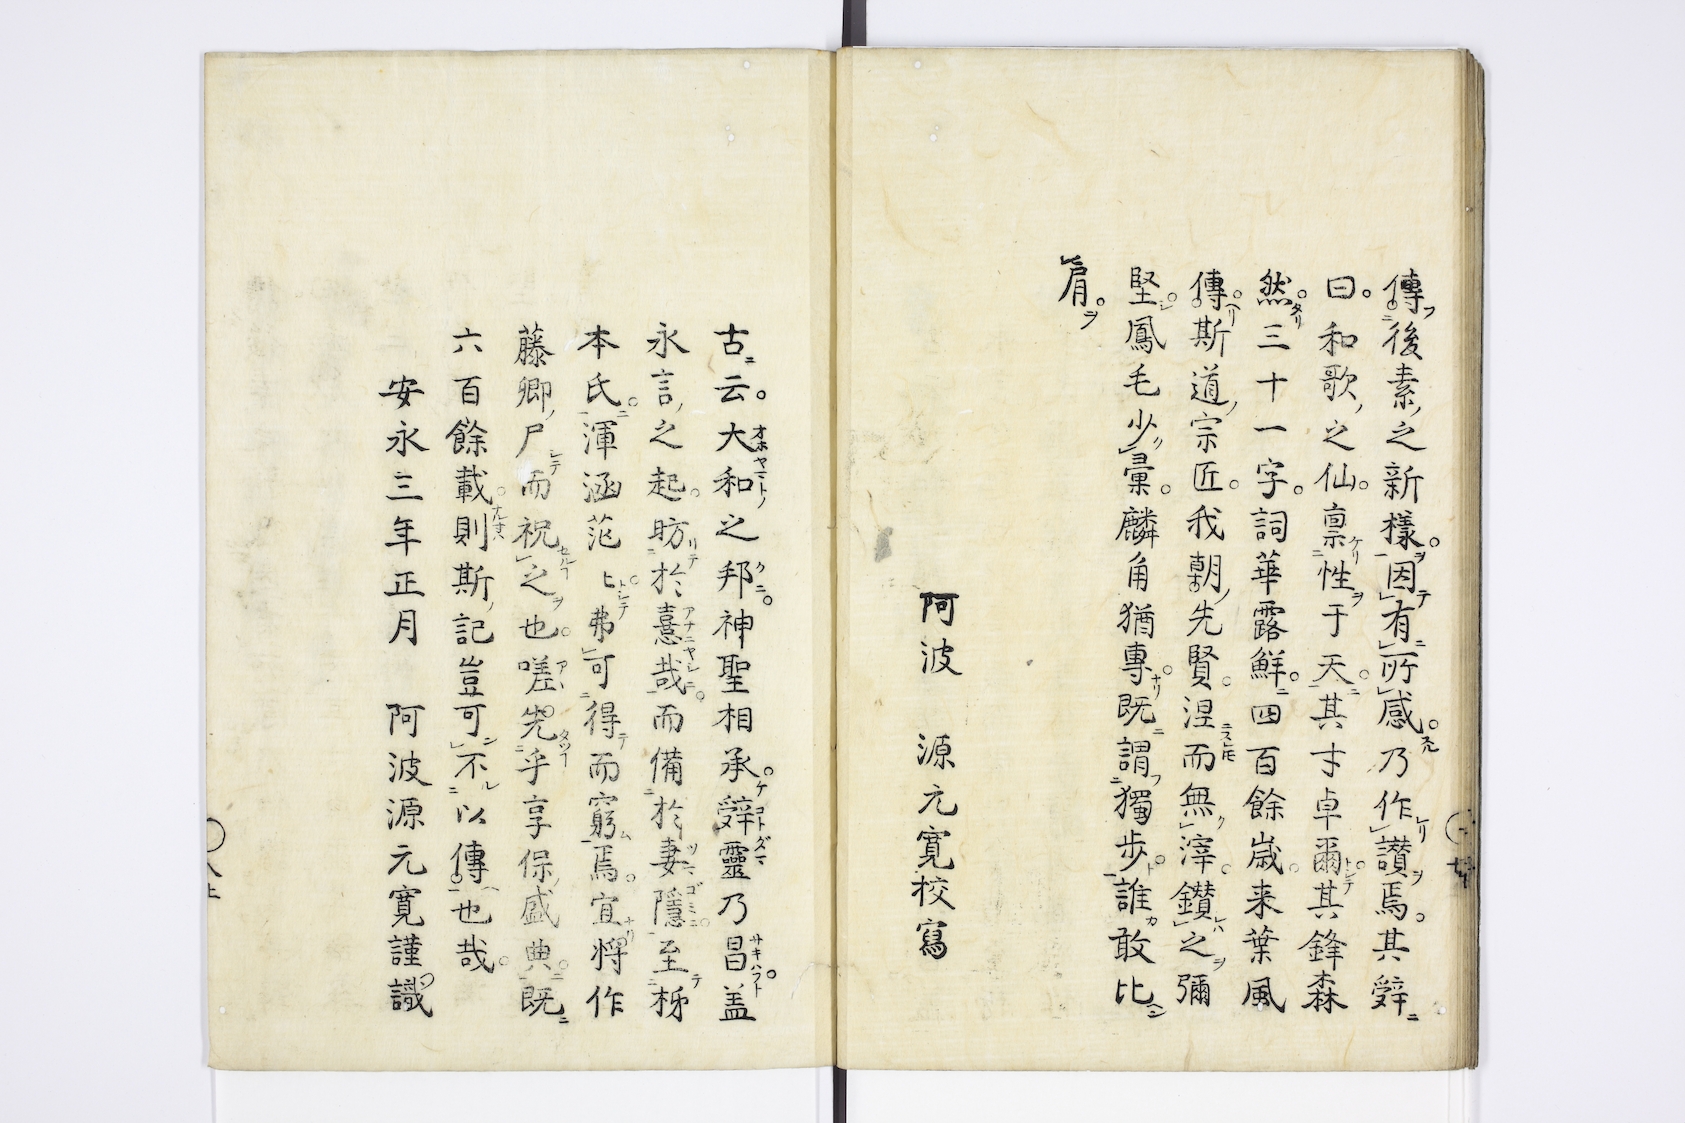 傳後素之新樣因有所感乃作讃焉其辤
曰和歌之仙禀性于天其才卓爾其鋒森
然三十一字詞華露鮮四百餘歳来葉風
傳斯道宗匠我朝先賢涅而無滓鑚之彌
堅鳳毛少彙麟角猶專既謂獨歩誰敢比
肩
阿波 源元寛校寫
古云大和之邦神聖相承辤靈乃昌盖
永言之起昉於憙哉而備於妻隱至柹
本氏渾涵茫々弗可得而窮焉宜將作
藤卿尸而祝之也嗟先乎享保盛典既
六百餘載則斯記豈可不以傳也哉
安永三年正月 阿波源元寛謹識